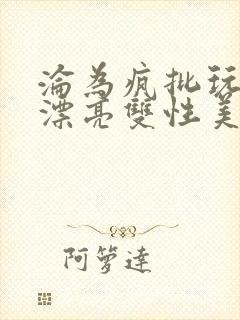 淪為瘋批玩
漂亮雙性美
阿箩達